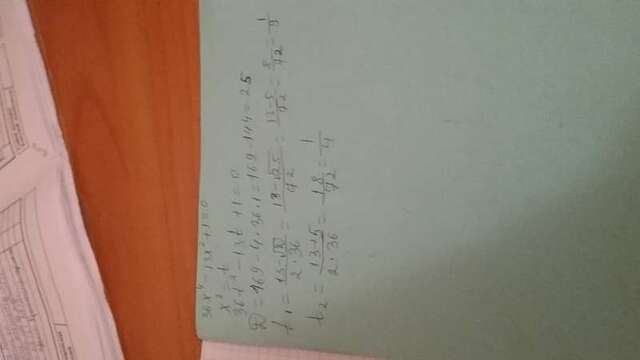 36x⁴-13x²+1=0
x²=t
36t²-13t+1=0
D=169-4·36·1=169-144=25
t₁=(13-√D)/(2·36)=(13-√25)/72=(13-5)/72=8/72=1/9
t₂=(13+5)/(2·36)=18/72=1/4